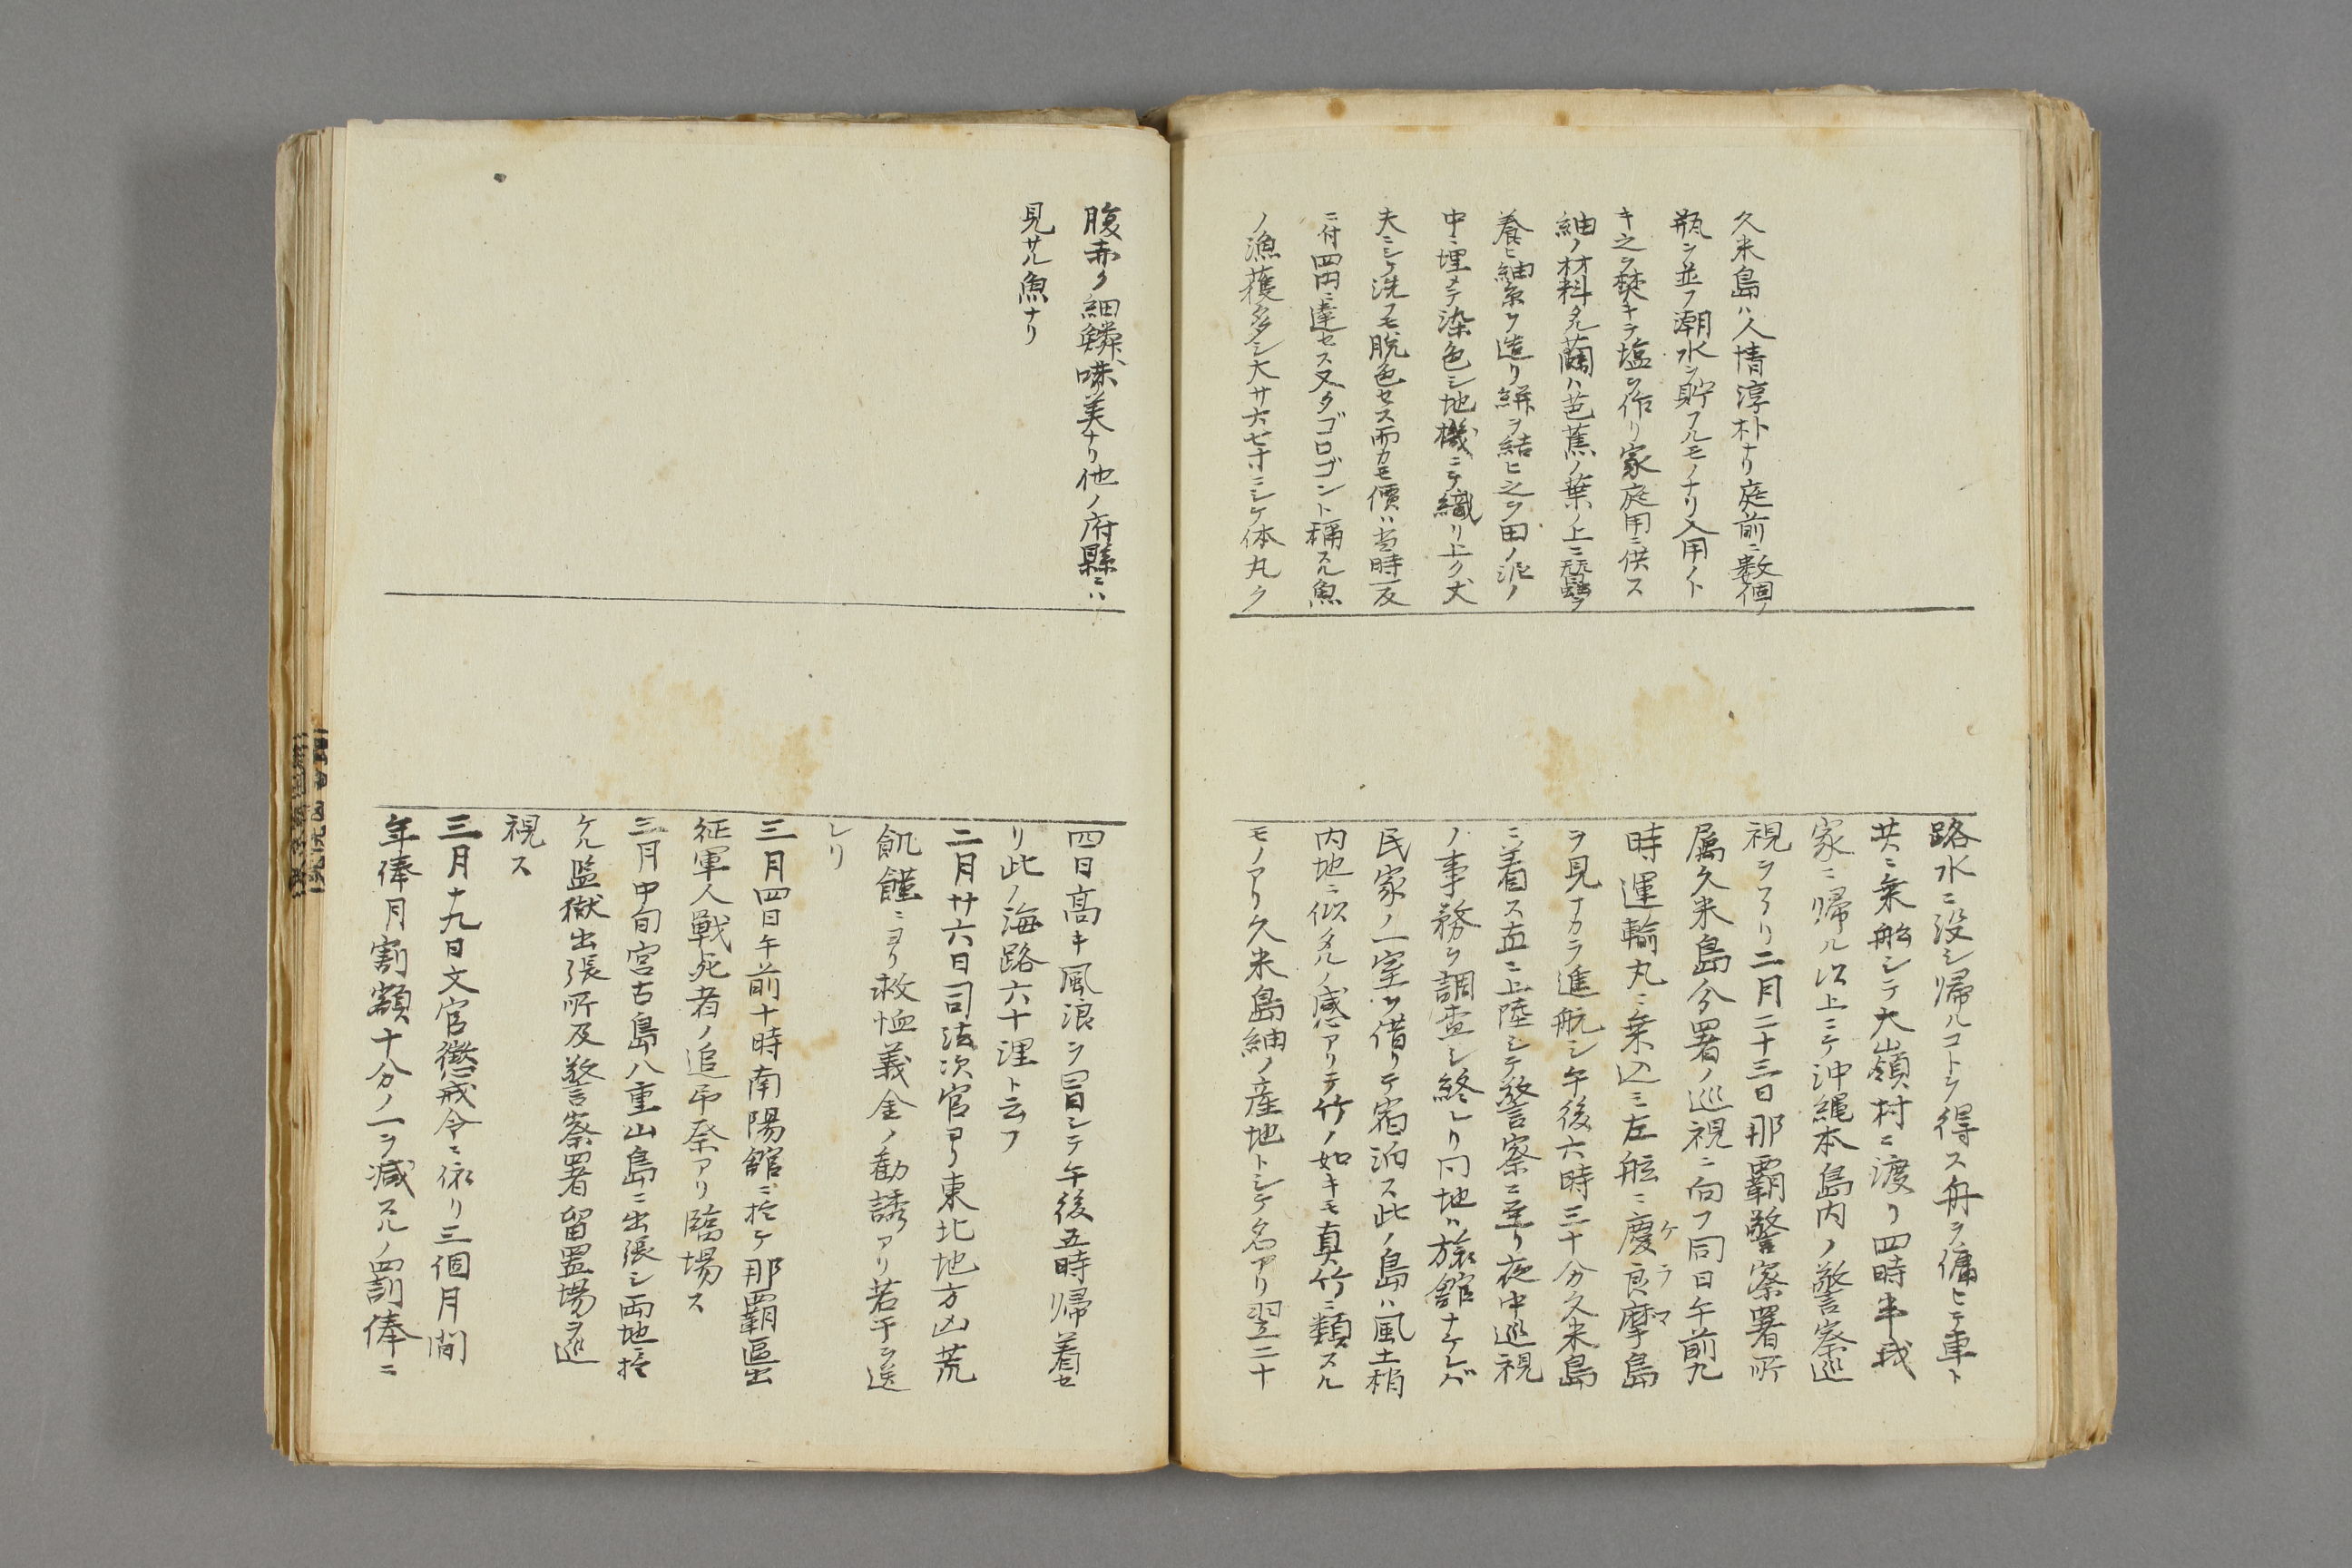 久米島ハ人情淳朴ナリ庭前ニ数個ノ
瓶ヲ並フ潮水ヲ貯フルモノナリ入用ノト
キ之ヲ焚キテ塩ヲ作リ家庭用ニ供ス
紬ノ材料タル繭ハ芭蕉ノ葉ノ上ニ蚕ヲ
養ヒ紬糸ヲ造リ絣ヲ結ヒ之ヲ田ノ泥ノ
中ニ埋メテ染色シ地機ニテ織リ上ク丈
夫ニシテ洗フモ脱色セス而カモ價ハ当時一反
ニ付四円ニ達セス又タゴロゴント稱スル魚
ノ漁獲多シ大サ六七寸ニシテ体丸ク
路水ニ没シ帰ルコトヲ得ス舟ヲ傭ヒテ車ト
共ニ乗船シテ大嶺村ニ渡リ四時半我
家ニ帰ル以上ニテ沖縄本島内ノ警察巡
視ヲ了リ二月二十三日那覇警察署所
属久米島分署ノ巡視ニ向フ同日午前九
時運輸丸ニ乗込ミ左舷ニ慶良摩島
ケラマ
ヲ見ナカラ進航シ午後六時三十分久米島
ニ着ス直ニ上陸シテ警察ニ至リ夜中巡視
ノ事務ヲ調査シ終レリ同地ハ旅舘ナケレバ
民家ノ一室ヲ借リテ宿泊ス此ノ島ハ風土稍
内地ニ似タルノ感アリテ竹ノ如キモ真竹ニ類スル
モノアリ久米島紬ノ産地トシテ名アリ翌二十
腹赤ク細鱗味美ナリ他ノ府縣ニハ
見サル魚ナリ
四日高キ風浪ヲ冒シテ午後五時帰着セ
リ此ノ海路六十浬ト云フ
二月廿六日司法次官ヨリ東北地方凶荒
飢饉ニヨリ救恤義金ノ勧誘アリ若干ヲ送
レリ
三月四日午前十時南陽舘ニ於テ那覇區出
征軍人戦死者ノ追弔祭アリ臨場ス
三月中旬宮古島八重山島ニ出張シ両地ニ於
ケル監獄出張所及警察署留置場ヲ巡
視ス
三月十九日文官懲戒令ニ依リ三個月間
年俸月割額十分ノ一ヲ減スルノ罰俸ニ